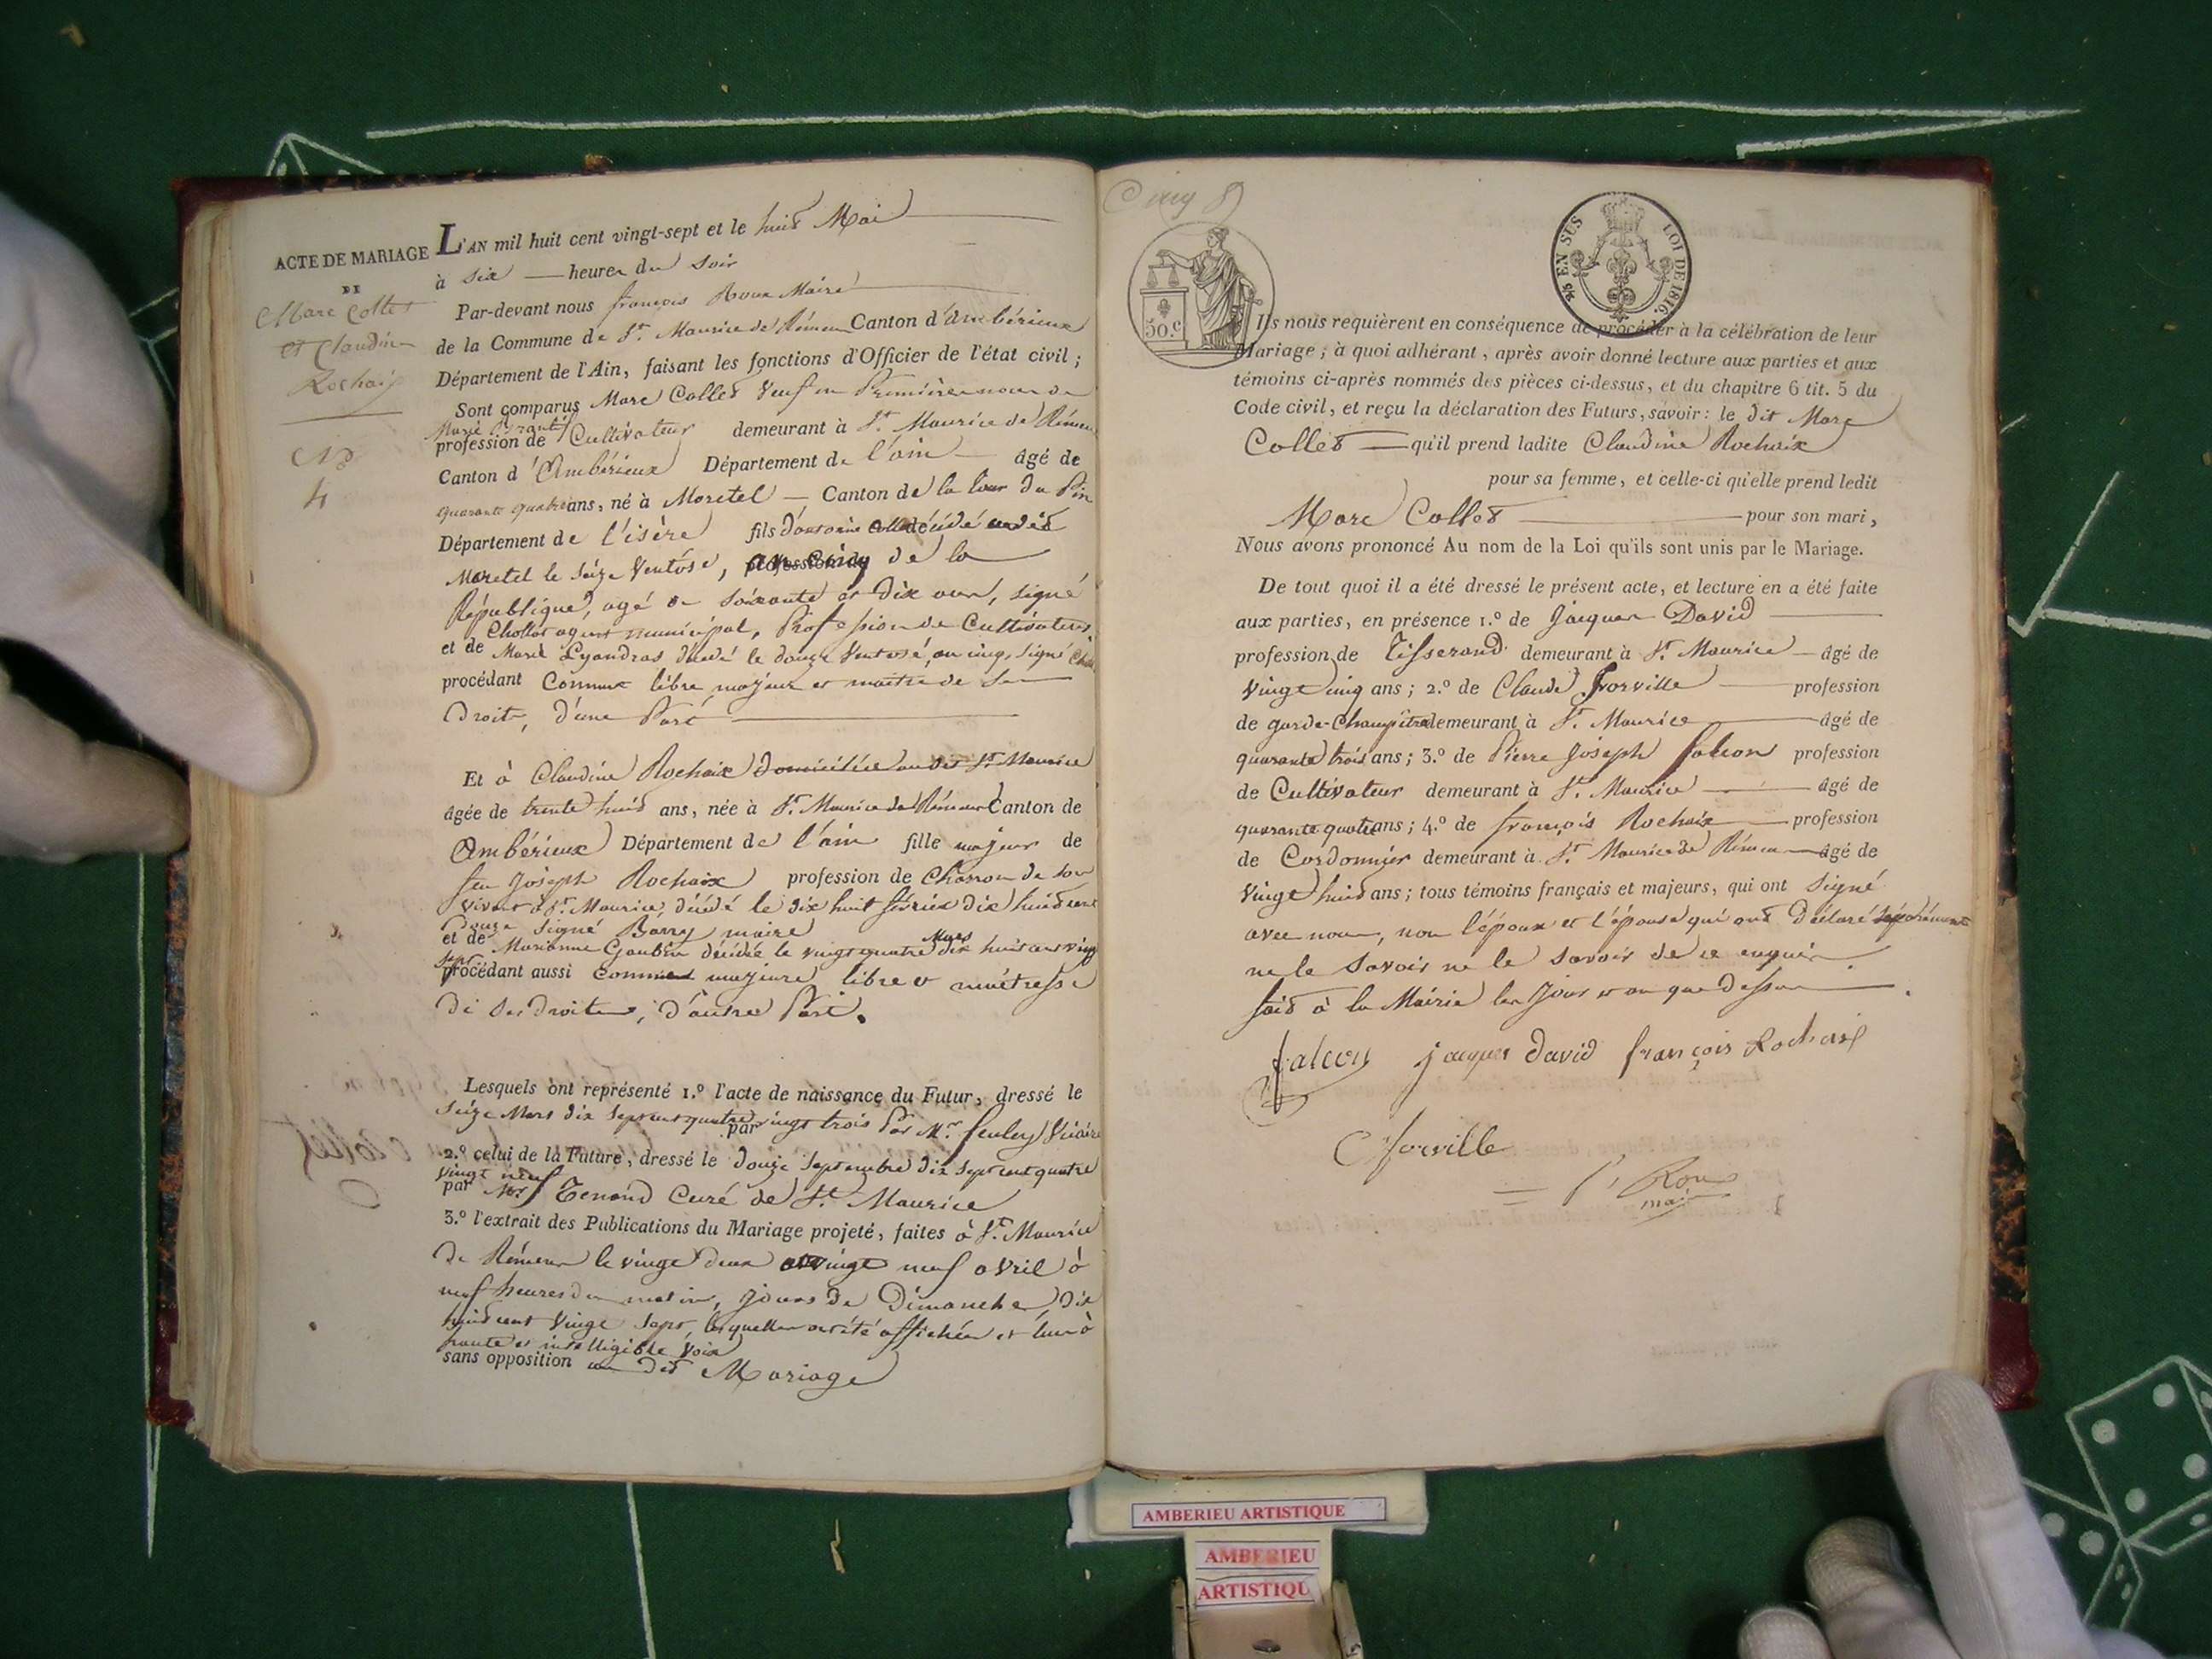 ACTE DE MARIAGE
DE
Marc Collet
et Claudine
Rochaix
N.º
4
L'AN mil huit cent vingt-sept et le huit Mai
à six heures du soir
Par-devant nous françois Roux Maire
de la Commune de St. Maurice de Rémens Canton d'Ambérieux
Département de l'Ain, faisant les fonctions d'Officier de l'état civil;
Sont comparus Marc Collet Veuf en Premières noces de
Marie
profession de Cultivateur demeurant à St. Maurice de Rémens
Canton d'Ambérieux Département de l'ain âgé de
quarante quatre ans, né à Moretel Canton de la tour du Pin
Département de l'isère fils d'antoine Collet décédé audit
Moretel le Seize Ventôse, an cinq de la
République, agé de soixante et dix ans, signé
Chollat agent municipal, Profession de Cultivateur
et de Marie décédé le douze Ventosé, an cinq, signé
procédant Comme libre majeur et maitre de ses
Droits, d'une Part
Et à Claudine Rochaix domiciliée audit St. Maurice
âgée de trente huit ans, née à St. Maurice de Rémens Canton de
Ambérieux Département de l'ain fille majeure de
feu Joseph Rochaix profession de Charron de son
vivant à St. Maurice, décédé le dix huit février dix huit cent
Douze signé Barry maire
et de Marianne Goubin décédée le vingt quatre Mars dix huit cent vingt
sept
procédant aussi Comme majeure libre et maitresse
de ses droits, d'autre Part.
Lesquels ont représenté 1.º l'acte de naissance du Futur, dressé le
Seize Mars dix sept cent quatre vingt trois
par Par Mr. Vicaire
2.º celui de la Future, dressé le douze Septembre dix sept cent quatre
vingt neuf
par Mr. Tenand Curé de St. Maurice
3.º l'extrait des Publications du Mariage projeté, faites à St. Maurice
de Rémens le vingt deux et vingt neuf avril à
neuf heures du matin, jours de Dimanche, dix
huit cent vingt sept, lesquelles ont été affichées et lues à
haute et intelligible voix
sans opposition au dit Mariage
Cinq
50.C
3/5 EN SUS LOI DE 1816
Ils nous requièrent en conséquence de procéder à la célébration de leur
Mariage; à quoi adhérant, après avoir donné lecture aux parties et aux
témoins ci-après nommés des pièces ci-dessus, et du chapitre 6 tit. 5 du
Code civil, et reçu la déclaration des Futurs, savoir: le dit Marc
Collet qu'il prend ladite Claudine Rochaix
pour sa femme, et celle-ci qu'elle prend ledit
Marc Collet pour son mari,
Nous avons prononcé Au nom de la Loi qu'ils sont unis par le Mariage.
De tout quoi il a été dressé le présent acte, et lecture en a été faite
aux parties, en présence 1.º de Jacques David
profession de Tisserand demeurant à St. Maurice âgé de
vingt cinq ans; 2.º de Claude Jorville profession
de garde-Champêtre demeurant à St. Maurice âgé de
quarante trois ans; 3.º de Pierre Joseph falcon profession
de Cultivateur demeurant à St. Maurice âgé de
quarante quatre ans; 4.º de françois Rochaix profession
de Cordonnier demeurant à St. Maurice de Rémens âgé de
vingt huit ans; tous témoins français et majeurs, qui ont signé
avec nous, non l'époux et l'épouse qui ont déclaré séparément
ne le savoir ne le savoir de ce enquis.
fait à la Mairie les jour et an que dessus
falcon jacques david françois Rochaix
Jorville
Roux
maire
AMBERIEU ARTISTIQUE
AMBERIEU
ARTISTIQU